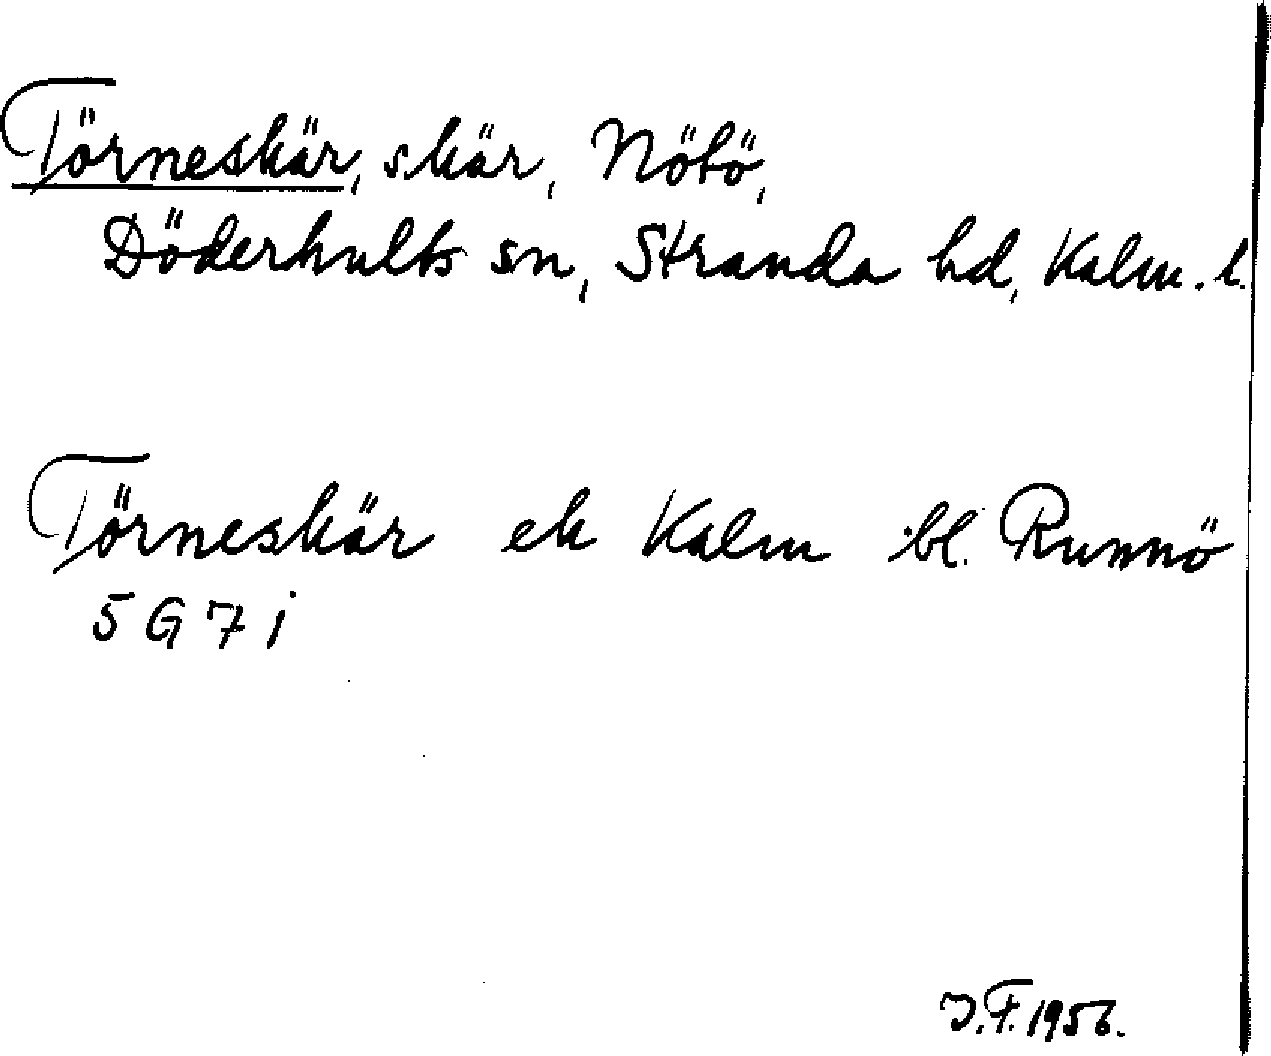 Törneskär, skär, Nötö,
Döderhults sn, Stranda hd, Kalm. l.
Törneskär ek Kalm bl. Runnö
5 G 7 i
J.F. 1956.